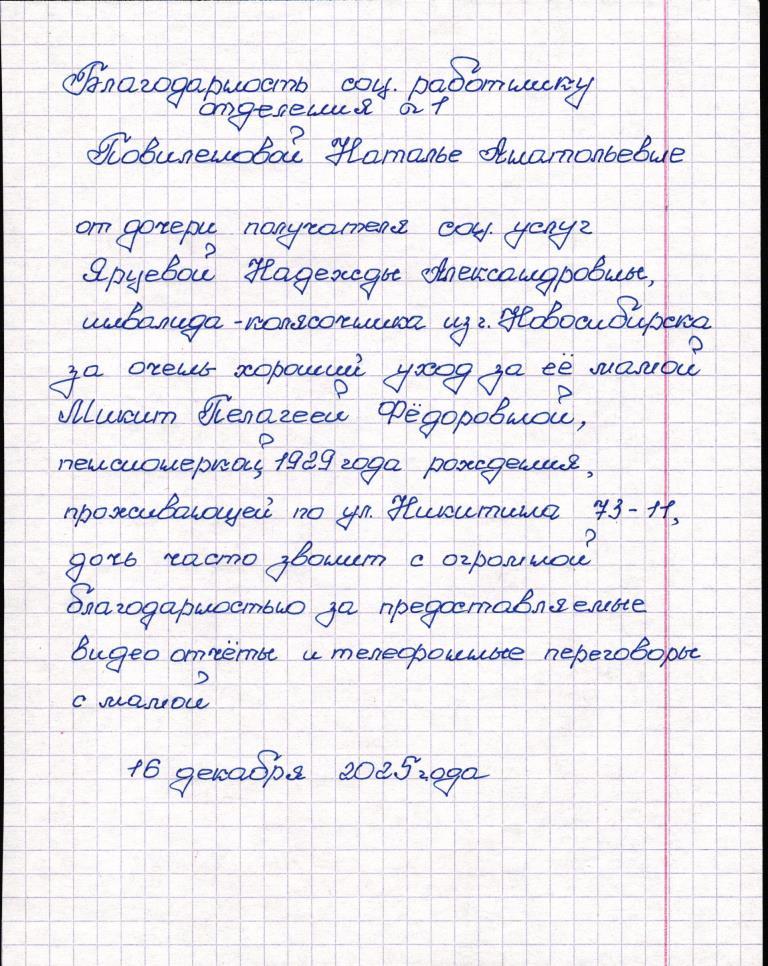 Благодарность соц. работнику
отделения №1
Повиленовой Наталье Анатольевне
от дочери получателя соц. услуг
Яруевой Надежды Александровны,
инвалида-колясочника из г. Новосибирска
за очень хороший уход за её мамой
Микит Пелагеей Фёдоровной,
пенсионеркой, 1929 года рождения,
проживающей по ул. Никитина 73-11,
дочь часто звонит с огромной
благодарностью за предоставляемые
видео отчёты и телефонные переговоры
с мамой
16 декабря 2025 года